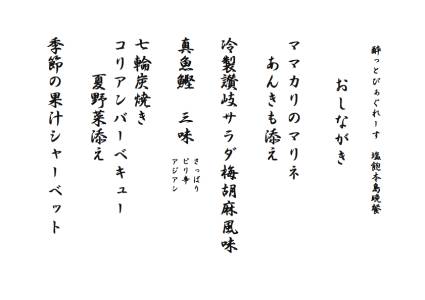 酔っとびあぐれーす　塩飽本島晩餐
おしながき
ママカリのマリネ
あんきも添え
冷製讃岐サラダ梅胡麻風味
真魚鰹　三味
さっぱり
ピリ辛
アジアン
七輪炭焼き
コリアンバーベキュー
夏野菜添え
季節の果汁シャーベット